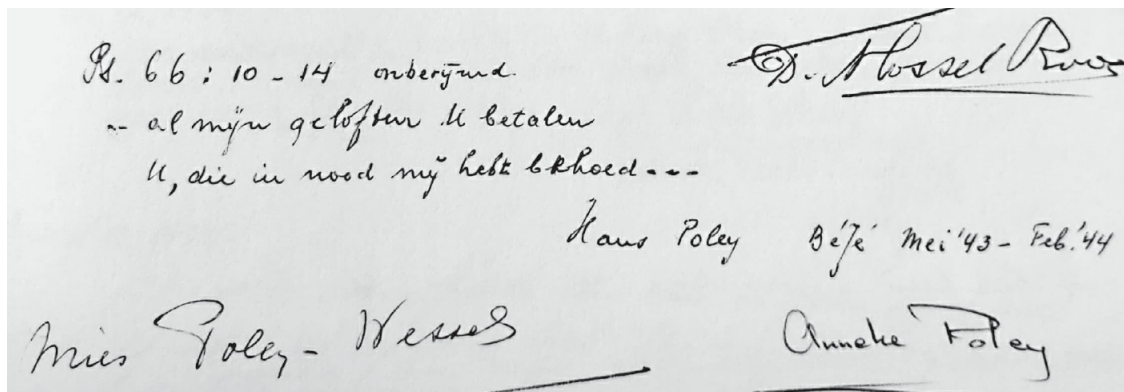 Ps. 66 : 10 - 14 onberijmd.
-- al mijn geloften U betalen
U, die in nood mij hebt behoed ---
D. Mossel Roos
Hans Poley BéJé Mei '43 - Feb. '44
Mies Poley - Wessels
Anneke Poley